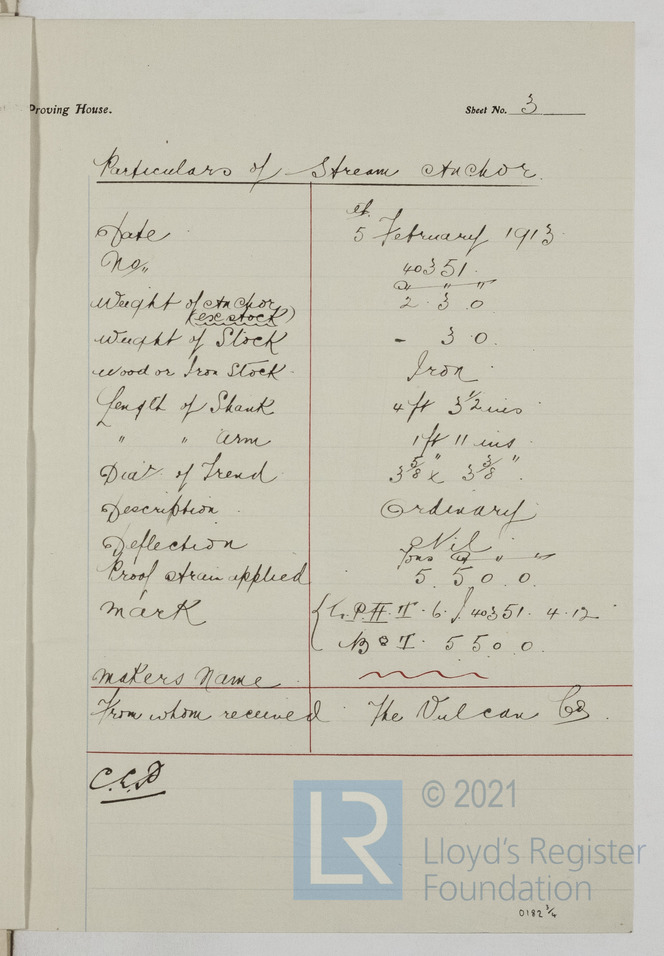 Proving House.
Sheet No. 3
Particulars of Stream Anchor.
Date 5 February 1913
No,, 40351.
Weight of Anchor 2. 3. 0
(ex stock)
Weight of Stock - 3. 0.
Wood or Iron Stock. Iron.
Length of Shank 4 ft 3 1/2 ins
" " Arm 1 ft 11 ins.
Diar. of Trend 3 5/8" x 3 3/8".
Description. Ordinary.
Deflection Nil
Tons
Proof strain applied 5. 5. 0. 0.
Mark 40351. 4.12
5 5 0 0.
Makers Name
From whom received The Vulcan Co.
LR
© 2021
Lloyd's Register
Foundation
0182 3/4